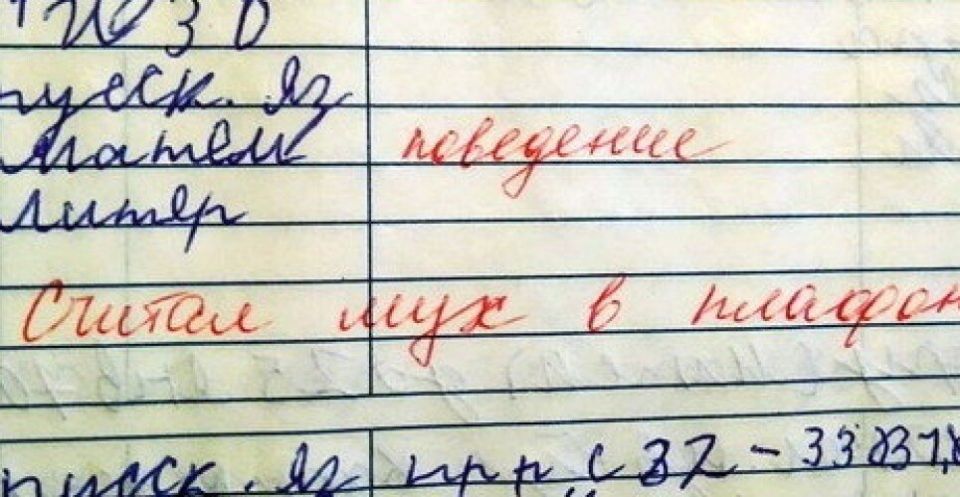 ИЗО
русск. яз
матем поведение
литер
Считал мух в плафон
русск. яз